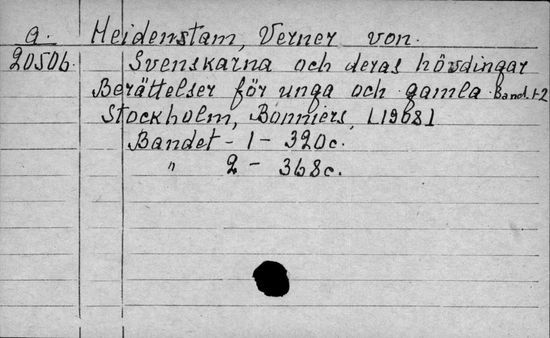 a. Heidenstam, Verner von.
20506. Svenskarna och deras hövdingar
Berättelser för unga och gamla. Band. 1-2
Stockholm, Bonniers, [1968]
Bandet - 1 - 320c.
" 2 - 368c.